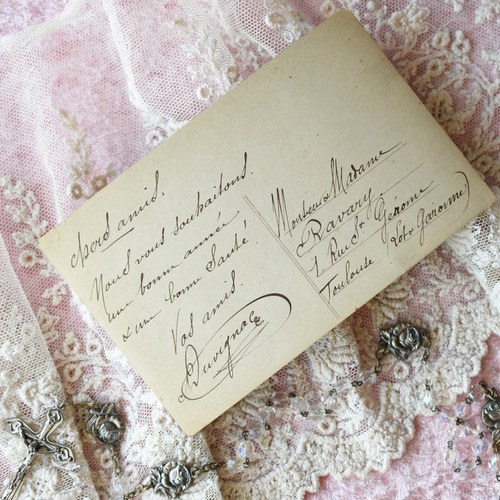 chers amis.
Nous vous souhaitons
une bonne année
& une bonne Santé
Vos amis.
Duvignac
Monsieur Madame
Ravary
1 Rue St Gérome
Toulouse
(Hte Garonne)